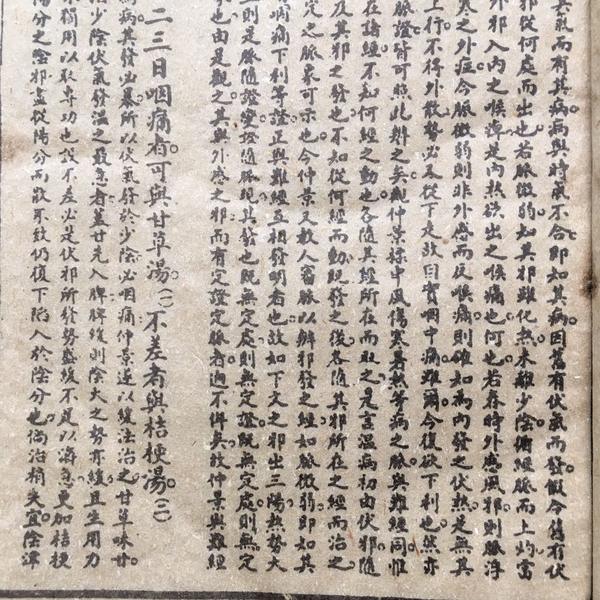 其氣而有其病。病與時氣不合。即知其病因舊有伏氣而發。假令舊有伏
邪從何處而出也。若脈微弱。知其邪雖化熱。未離少陰。循經脈而上灼。當
外邪入內之喉痺。是內熱欲出之喉痛也。何也。若春時外感風邪。則脈浮
之外症。今脈微弱。則非外感。而反喉痛。則確知為內發之伏熱。是無其
上行。不得外散。勢必又從下走。故曰實咽中痛難爾。今復欲下利也。然亦
脈證皆可照此辨之矣。觀仲景條中。風傷寒暑熱等病之脈。與難經同。惟
在諸經。不知何經之動也。各隨其經所在而取之。是言溫病初由伏邪隨
及其邪之發也。不知從何經而動。既發之後。各隨其邪所在之經而治之。
定之脈象可示也。今仲景又教人審脈以辨邪發之經。如脈微弱。即知其
則是脈隨證變。證隨脈現。其發也既無定處。則無定證。既無定處。則無定
咽痛下利等證。正與難經互相發明者也。故如下文之邪出三陽。熱勢大
也。由是觀之。其與外感之邪。而有定證定脈者。迥不侔矣。故仲景與難經
二三日咽痛者。可與甘草湯。(一)不差者。與桔梗湯。(二)
病。其發必暴。所以伏氣發於少陰。必咽痛。仲景遂以緩法治之。甘草味甘。
少陰伏氣發溫之最急者。蓋甘先入脾。脾緩則陰火之勢亦緩。且生用力
獨用以取專功也。設不差。必是伏邪所發勢盛。緩不足以濟急。更加桔梗
分之陰邪。盡從陽分而散。不致仍復下陷入於陰分也。倘治稍失宜。陰津